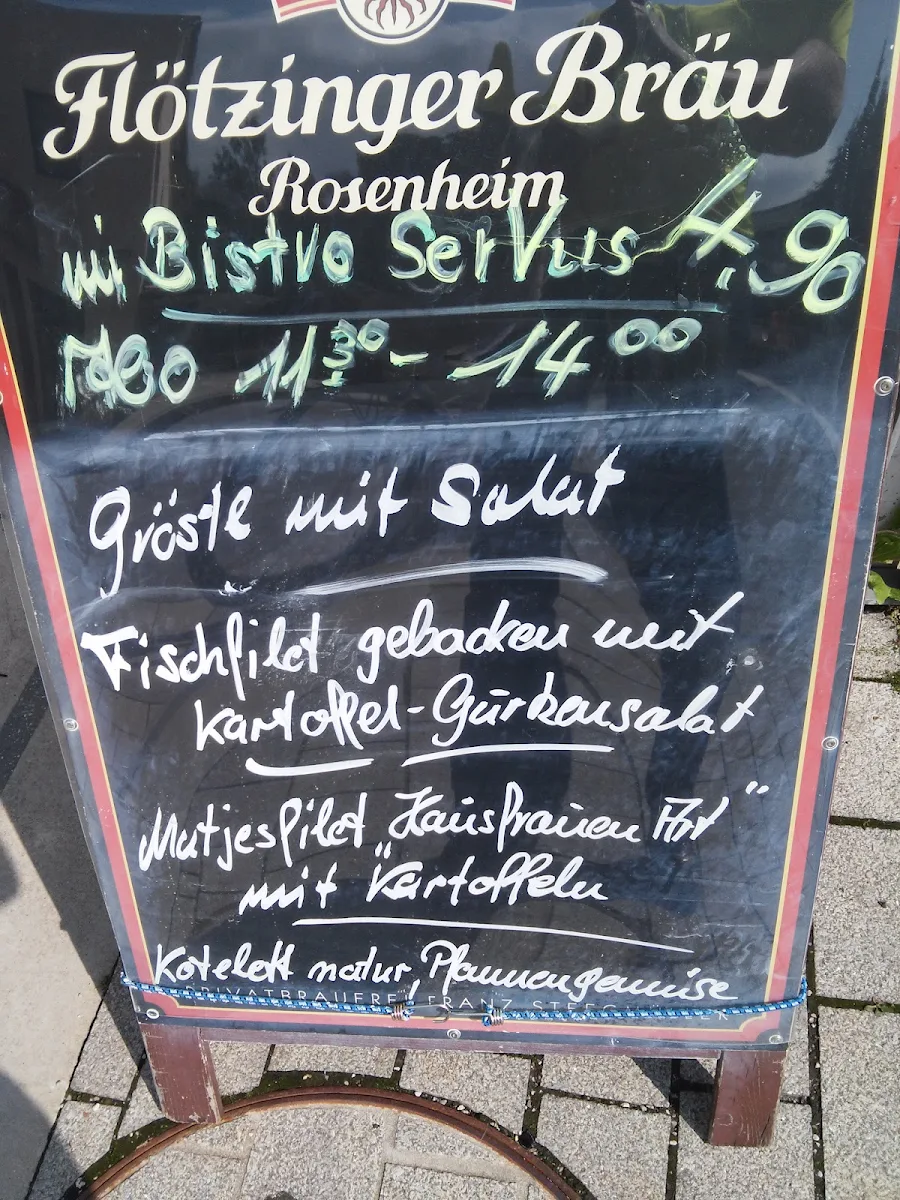 Flötzinger Bräu
Rosenheim
im Bistro Servus 4,90
11³⁰ - 14⁰⁰
Gröstl mit Salat
Fischfilet gebacken mit
Kartoffel-Gurkensalat
Matjesfilet „Hausfrauen Art"
mit Kartoffeln
Kotelett natur, Pfannengemüse
PRIVATBRAUEREI FRANZ